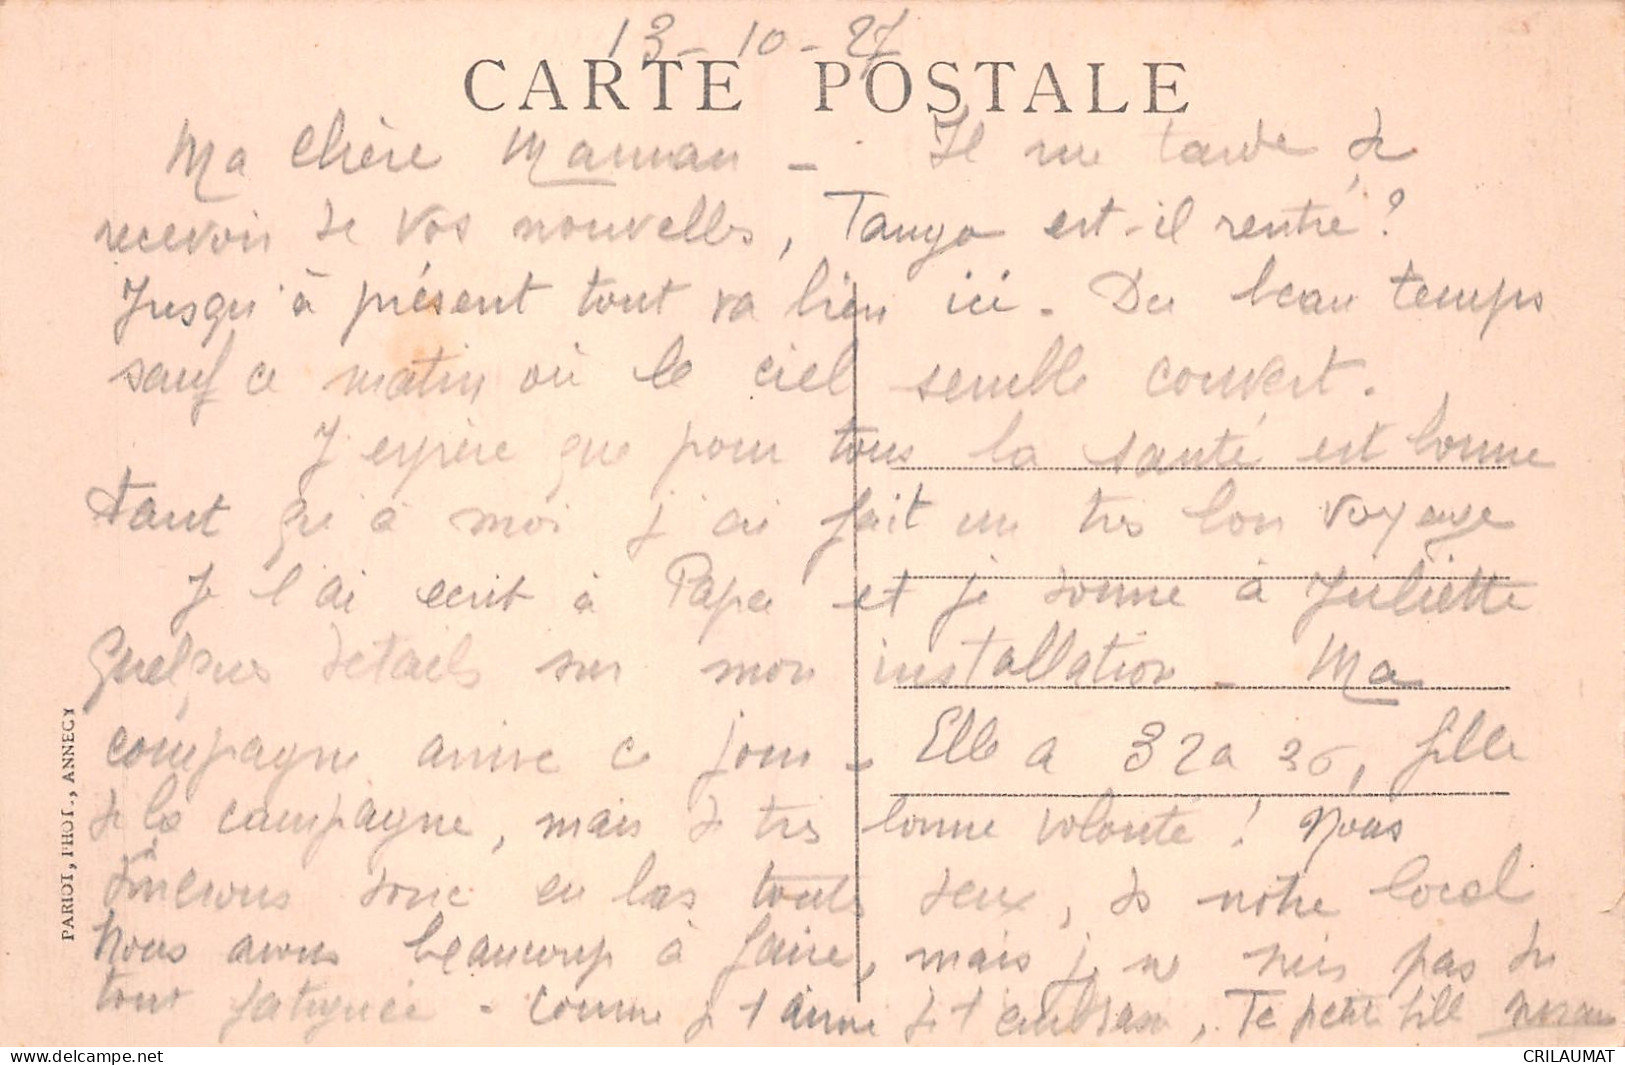 13-10-27
CARTE POSTALE
Ma Chère Maman - Il me tarde de
recevoir de vos nouvelles, Tango est-il rentré?
Jusqu'à présent tout va bien ici - Du beau temps
sauf ce matin où le ciel semble couvert.
J'espère que pour tous la santé est bonne
tant qu'à moi j'ai fait un très bon voyage
Je l'ai écrit à Papa et je donne à Juliette
Quelques détails sur mon installation - Ma
compagne arrive ce jour - Elle a 32 a 36, fille
de la campagne, mais de très bonne volonté! Nous
donc en bas toutes deux, de notre local
Nous avons beaucoup à faire, mais je ne suis pas du
tout fatiguée - comme je t'aime je t'embrasse, Ta petite fille
PARIOT, PHOT., ANNECY
www.delcampe.net
CRILAUMAT